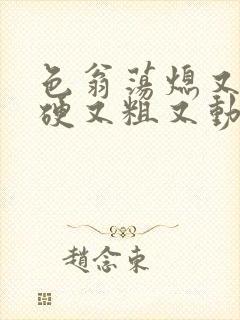 色翁荡熄又
硬又粗又動
趙念東